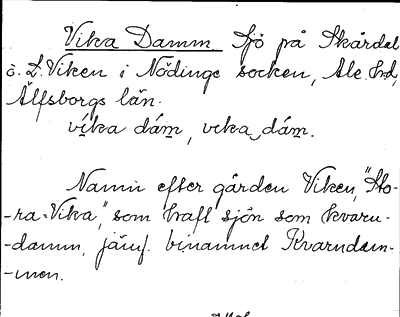 Vika Damm Sjö på Skårdal
o. L. Viken i Nödinge socken, Ale hd,
Älfsborgs län.
víka dám̲, vıka dám̲.
Namn efter gården Viken, "Sto-
-ra-Vika", som haft sjön som kvarn-
-damm, jämf. binamnet Kvarndam-
-men.